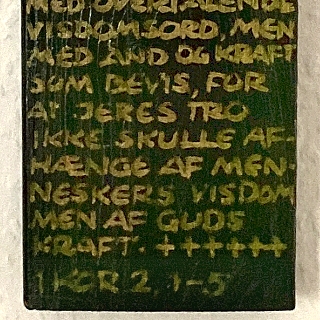 MED OVERTALENDE
VISDOMSORD, MEN
MED ÅND OG KRAFT
SOM BEVIS, FOR
AT JERES TRO
IKKE SKULLE AF-
HÆNGE AF MEN-
NESKERS VISDOM
MEN AF GUDS
KRAFT. ++++++
1 KOR 2, 1-5